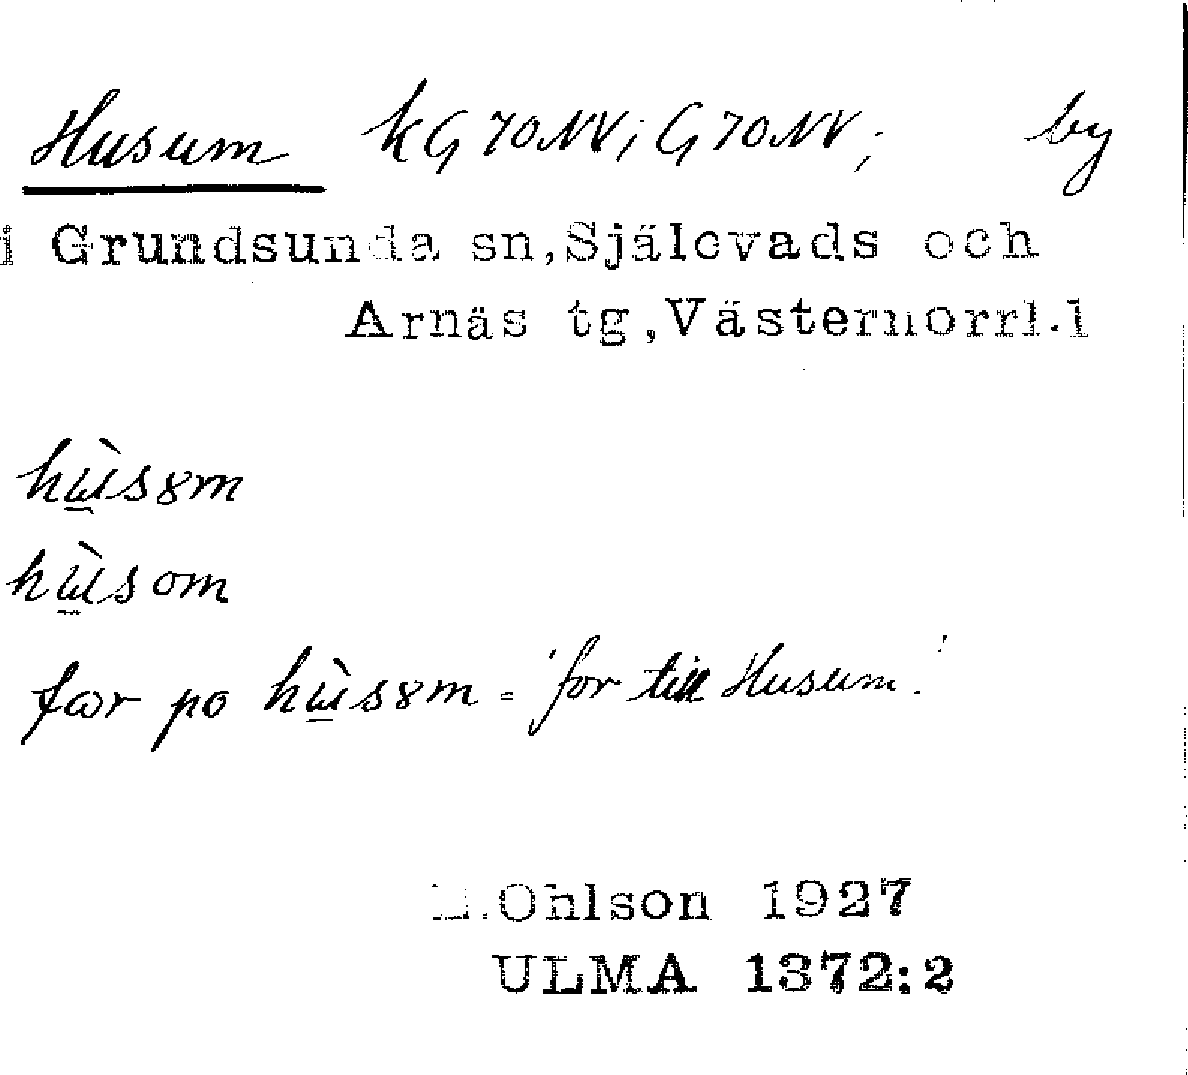 Husum kG70NV; G70NV; by
i Grundsunda sn,Själevads och
Arnäs tg,Västernorrl.l
hù̲s8m
hù̲som
for po hù̲s8m = 'for till Husum.'
.Ohlson 1927
ULMA 1372:2